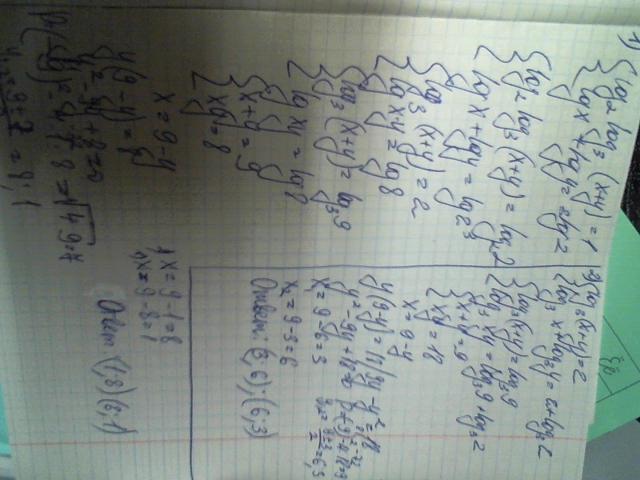 1) { log₂ log₃ (x+y) = 1
{ lg x + lg y = 2lg 2
{ log₂ log₃ (x+y) = log₂ 2
{ lg x + lg y = lg 2³
{ log₃ (x+y) = 2
{ lg x·y = lg 8
{ log₃ (x+y) = log₃ 9
{ lg xy = lg 8
{ x+y = 9
{ xy = 8
x = 9-y
y(9-y) = 8
y² - 9y + 8 = 0
= 8; 1
x = 9-1 = 8
x = 9-8 = 1
Ответ: (1,8) (8,1)
2) { log₃ (x+y) = 2
{ log₃ x + log₃ y = 2 + log₃ 2
{ log₃ (x+y) = log₃ 9
{ log₃ xy = log₃ 9 + log₃ 2
{ x+y = 9
{ xy = 18
x = 9-y
y(9-y) = 18 / 9y - y² = 18
y² - 9y + 18 = 0
x₁ = 9-6 = 3
x₂ = 9-3 = 6
Ответ: (3,6); (6,3)